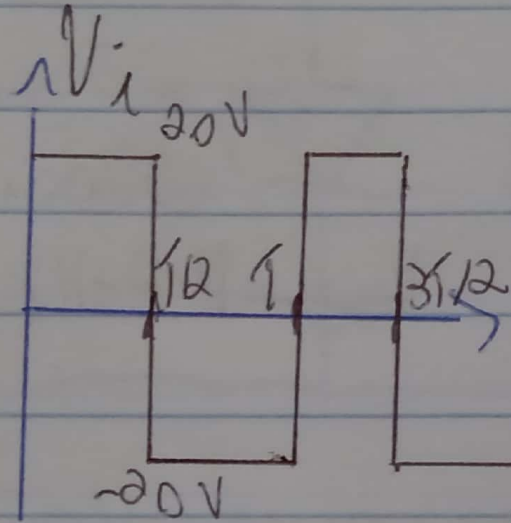 Vi
20V
T/2 T 3T/2
-20V